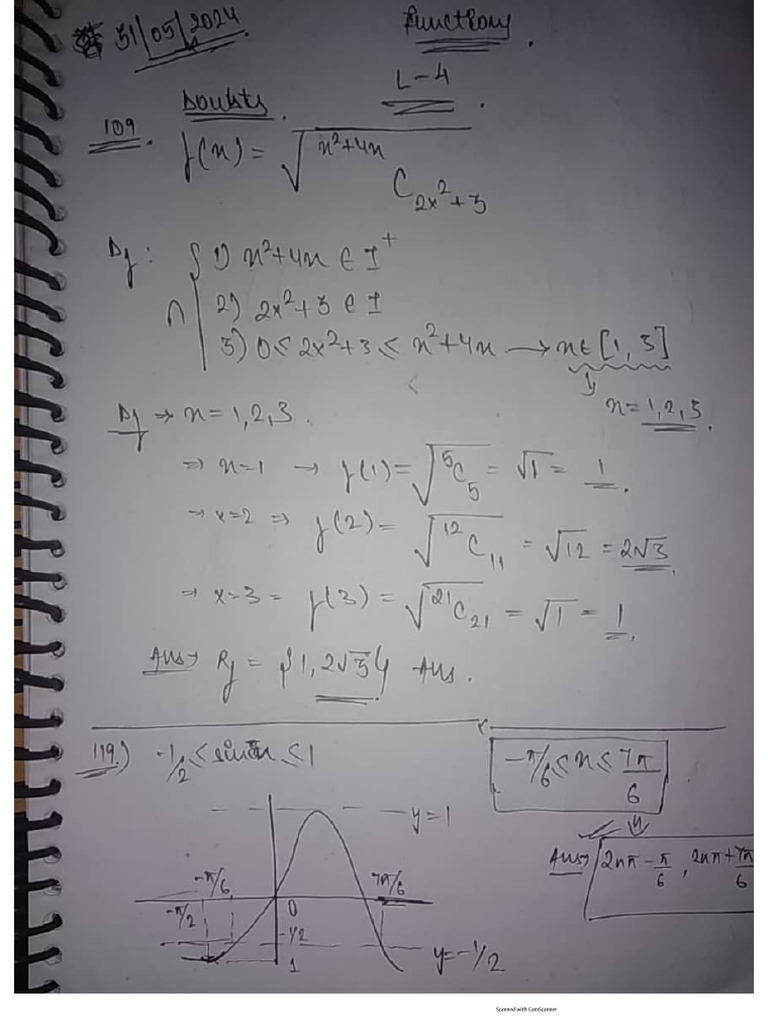 31/05/2024
Functions.
L-4.
Doubts.
109. f(x) = √(x²+4x C 2x²+3)
Df: ∩ { 1) x²+4x ∈ I⁺
2) 2x²+3 ∈ I
3) 0 ≤ 2x²+3 ≤ x²+4x → x ∈ [1, 3]
x = 1, 2, 3.
Df → x = 1, 2, 3.
⇒ x=1 → f(1) = √(⁵C₅) = √1 = 1.
→ x=2 ⇒ f(2) = √(¹²C₁₁) = √12 = 2√3.
⇒ x=3 = f(3) = √(²¹C₂₁) = √1 = 1.
Ans→ Rf = {1, 2√3} Ans.
119.) -1/2 ≤ sinx ≤ 1
-π/6 ≤ x ≤ 7π/6
y=1
Ans→ 2nπ - π/6, 2nπ + 7π/6
-π/6
7π/6
-π/2
0
-1/2
y=-1/2
1
Scanned with CamScanner